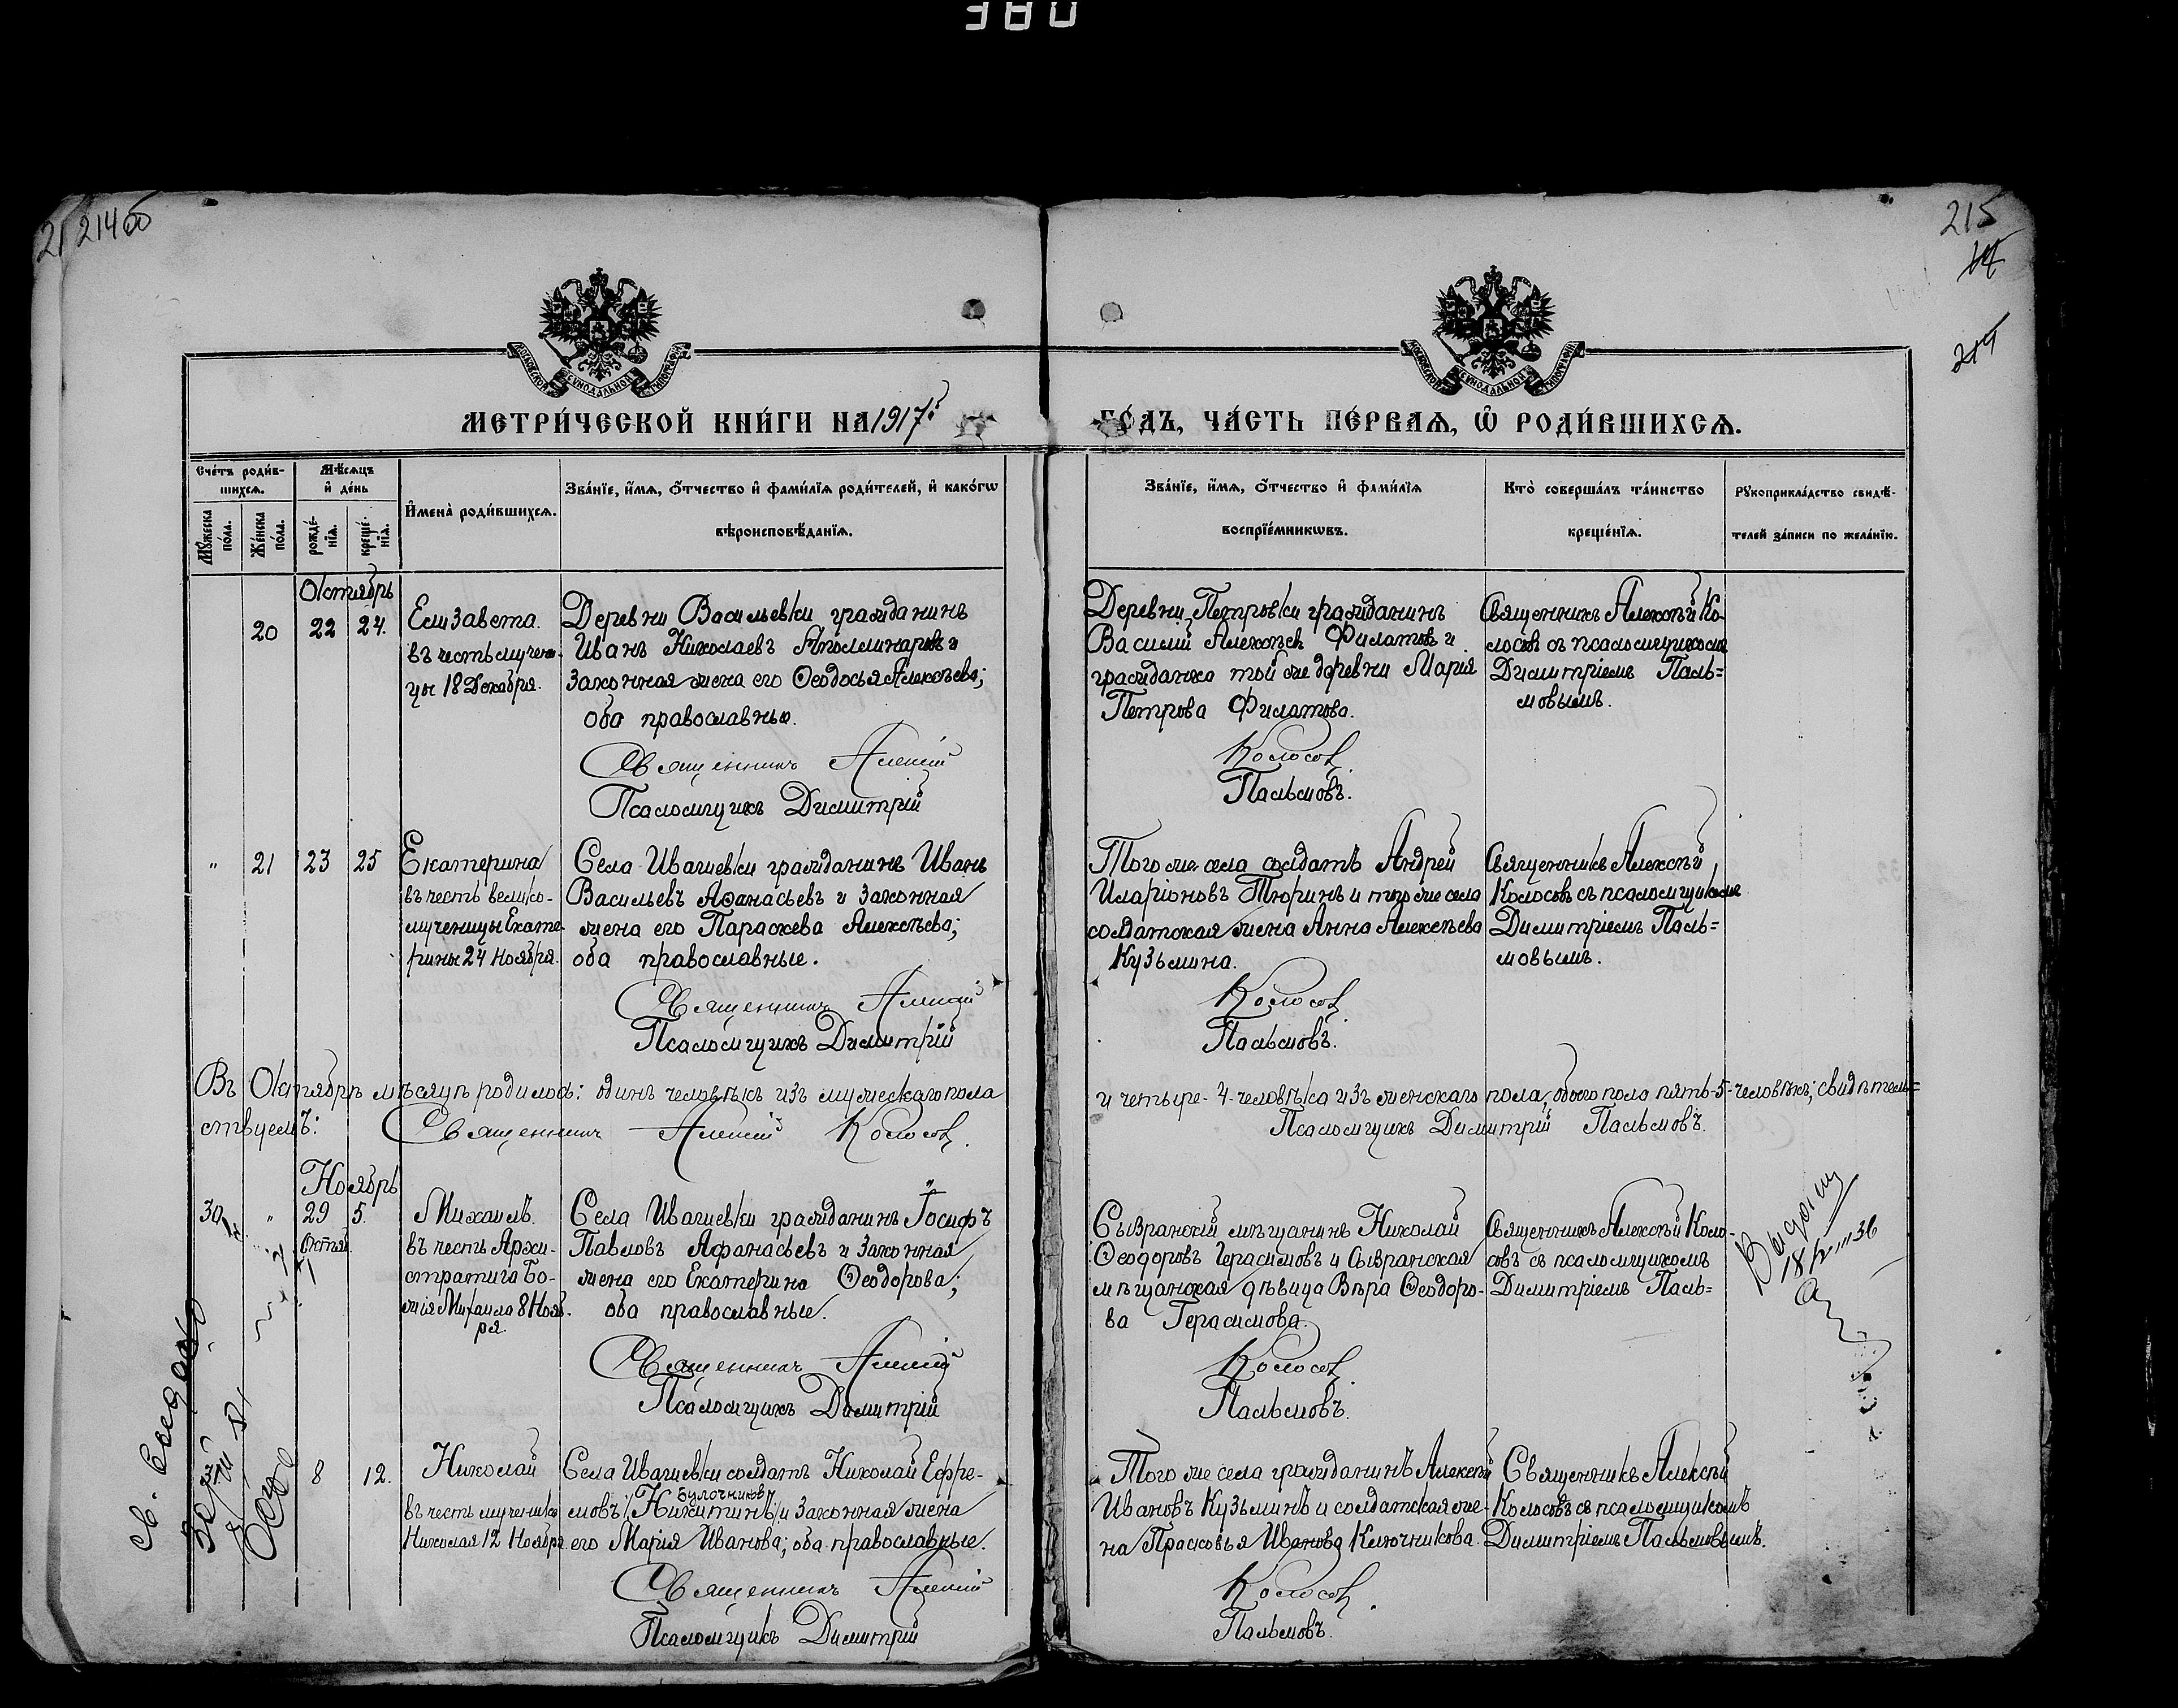 380
214об
215
214
МЕТРИ́ЧЕСКОЙ КНИ́ГИ НА 1917й
ГО́ДЪ, ЧА́СТЬ ПЕ́РВАѦ, Ѡ҆ РОДИ́ВШИХСѦ.
Сче́тъ роди́в-
шихсѧ.
Мѣ́сѧцъ
и҆ де́нь
И҆мена̀ роди́вшихсѧ.
Зва́нїе, и҆́мѧ, ѻ҆́тчество и҆ фами́лїѧ роди́телей, и҆ како́гѡ
вѣроисповѣ́данїѧ.
Мꙋ́жеска
по́ла.
Же́нска
по́ла.
рожде́-
нїѧ.
креще́-
нїѧ.
Зва́нїе, и҆́мѧ, ѻ҆́тчество и҆ фами́лїѧ
воспрїе́мникѡвъ.
Кто̀ соверша́лъ та́инство
креще́нїѧ.
Рꙋкоприкла́дство свидѣ́-
телей за́писи по жела́нїю.
Октябрь
20 22 24.
Елизавета.
въ честь мучени-
цы 18 Декабря.
Деревни Васильевки гражданинъ
Иванъ Николаевъ Аполлинаровъ и
законная жена его Ѳеодосья Алексѣева;
оба православные.
Священникъ Алексій
Псаломщикъ Димитрій
Деревни Петровки гражданинъ
Василій Алексѣевъ Филатовъ и
гражданка той же деревни Марія
Петрова Филатова.
Колосовъ
Пальмовъ.
Священникъ Алексѣй Ко-
лосовъ съ псаломщикомъ
Димитріемъ Паль=
мовымъ.
" 21 23 25
Екатерина
въ честь велико-
мученицы Екате-
рины 24 Ноября.
Села Ивашевки гражданинъ Иванъ
Васильевъ Аѳанасьевъ и законная
жена его Параскева Алексѣева;
оба православные.
Священникъ Алексій
Псаломщикъ Димитрій
Того же села солдатъ Андрей
Иларіоновъ Тюринъ и того же села
солдатская жена Анна Алексѣева
Кузьмина.
Колосовъ
Пальмовъ.
Священникъ Алексѣй
Колосовъ съ псаломщикомъ
Димитріемъ Паль=
мовымъ.
Въ Октябрѣ мѣсяцѣ родилось: одинъ человѣкъ изъ мужескаго пола
и четыре-4-человѣка изъ женскаго пола, обоего пола пять-5-человѣкъ; свидѣтель=
ствуемъ:
Священникъ Алексій Колосовъ.
Псаломщикъ Димитрій Пальмовъ.
Ноябрь
30 " 29 5.
Октяб.
Михаилъ.
въ честь Архи-
стратига Бо-
жія Михаила 8 Нояб-
ря.
Села Ивашевки гражданинъ Іосифъ
Павловъ Афанасьевъ и законная
жена его Екатерина Ѳеодорова;
оба православные.
Священникъ Алексій
Псаломщикъ Димитрій
Сызранскій мѣщанинъ Николай
Ѳеодоровъ Герасимовъ и Сызранская
мѣщанская дѣвица Вѣра Ѳеодоро-
ва Герасимова.
Колосовъ
Пальмовъ.
Священникъ Алексѣй Коло-
совъ съ псаломщикомъ
Димитріемъ Паль=
8 12.
Николай
въ честь мученика
Николая 12 Ноября.
Села Ивашевки солдатъ Николай Ефре-
Булочниковъ
мовъ /Никитинъ/ и законная жена
его Марія Иванова; оба православные.
Священникъ Алексій
Псаломщикъ Димитрій
Того же села гражданинъ Алексѣй
Ивановъ Кузьминъ и солдатская же-
на Прасковья Иванова Ключникова.
Колосовъ
Пальмовъ.
Священникъ Алексѣй
Колосовъ съ псаломщикомъ
Димитріемъ Пальмовымъ.